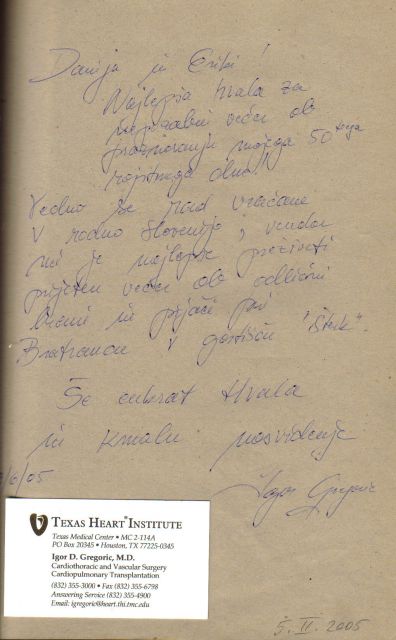 Danija in Eriki!
Najlepša hvala za
nepozabni večer ob
praznovanju mojega 50tega
rojstnega dne!!
Vedno se rad vračam
v rodno Slovenijo, vendar
mi je najlepše preživeti
prijeten večer ob odlični
hrani in pijači pri
Bratrancu v gostišču "Štirk".
Še enkrat Hvala
in kmalu nasvidenje
Igor Gregoric
/6/05
TEXAS HEART® INSTITUTE
Texas Medical Center • MC 2-114A
PO Box 20345 • Houston, TX 77225-0345
Igor D. Gregoric, M.D.
Cardiothoracic and Vascular Surgery
Cardiopulmonary Transplantation
(832) 355-3000 • Fax (832) 355-6798
Answering Service (832) 355-4900
Email: igregoric@heart.thi.tmc.edu
5. II. 2005